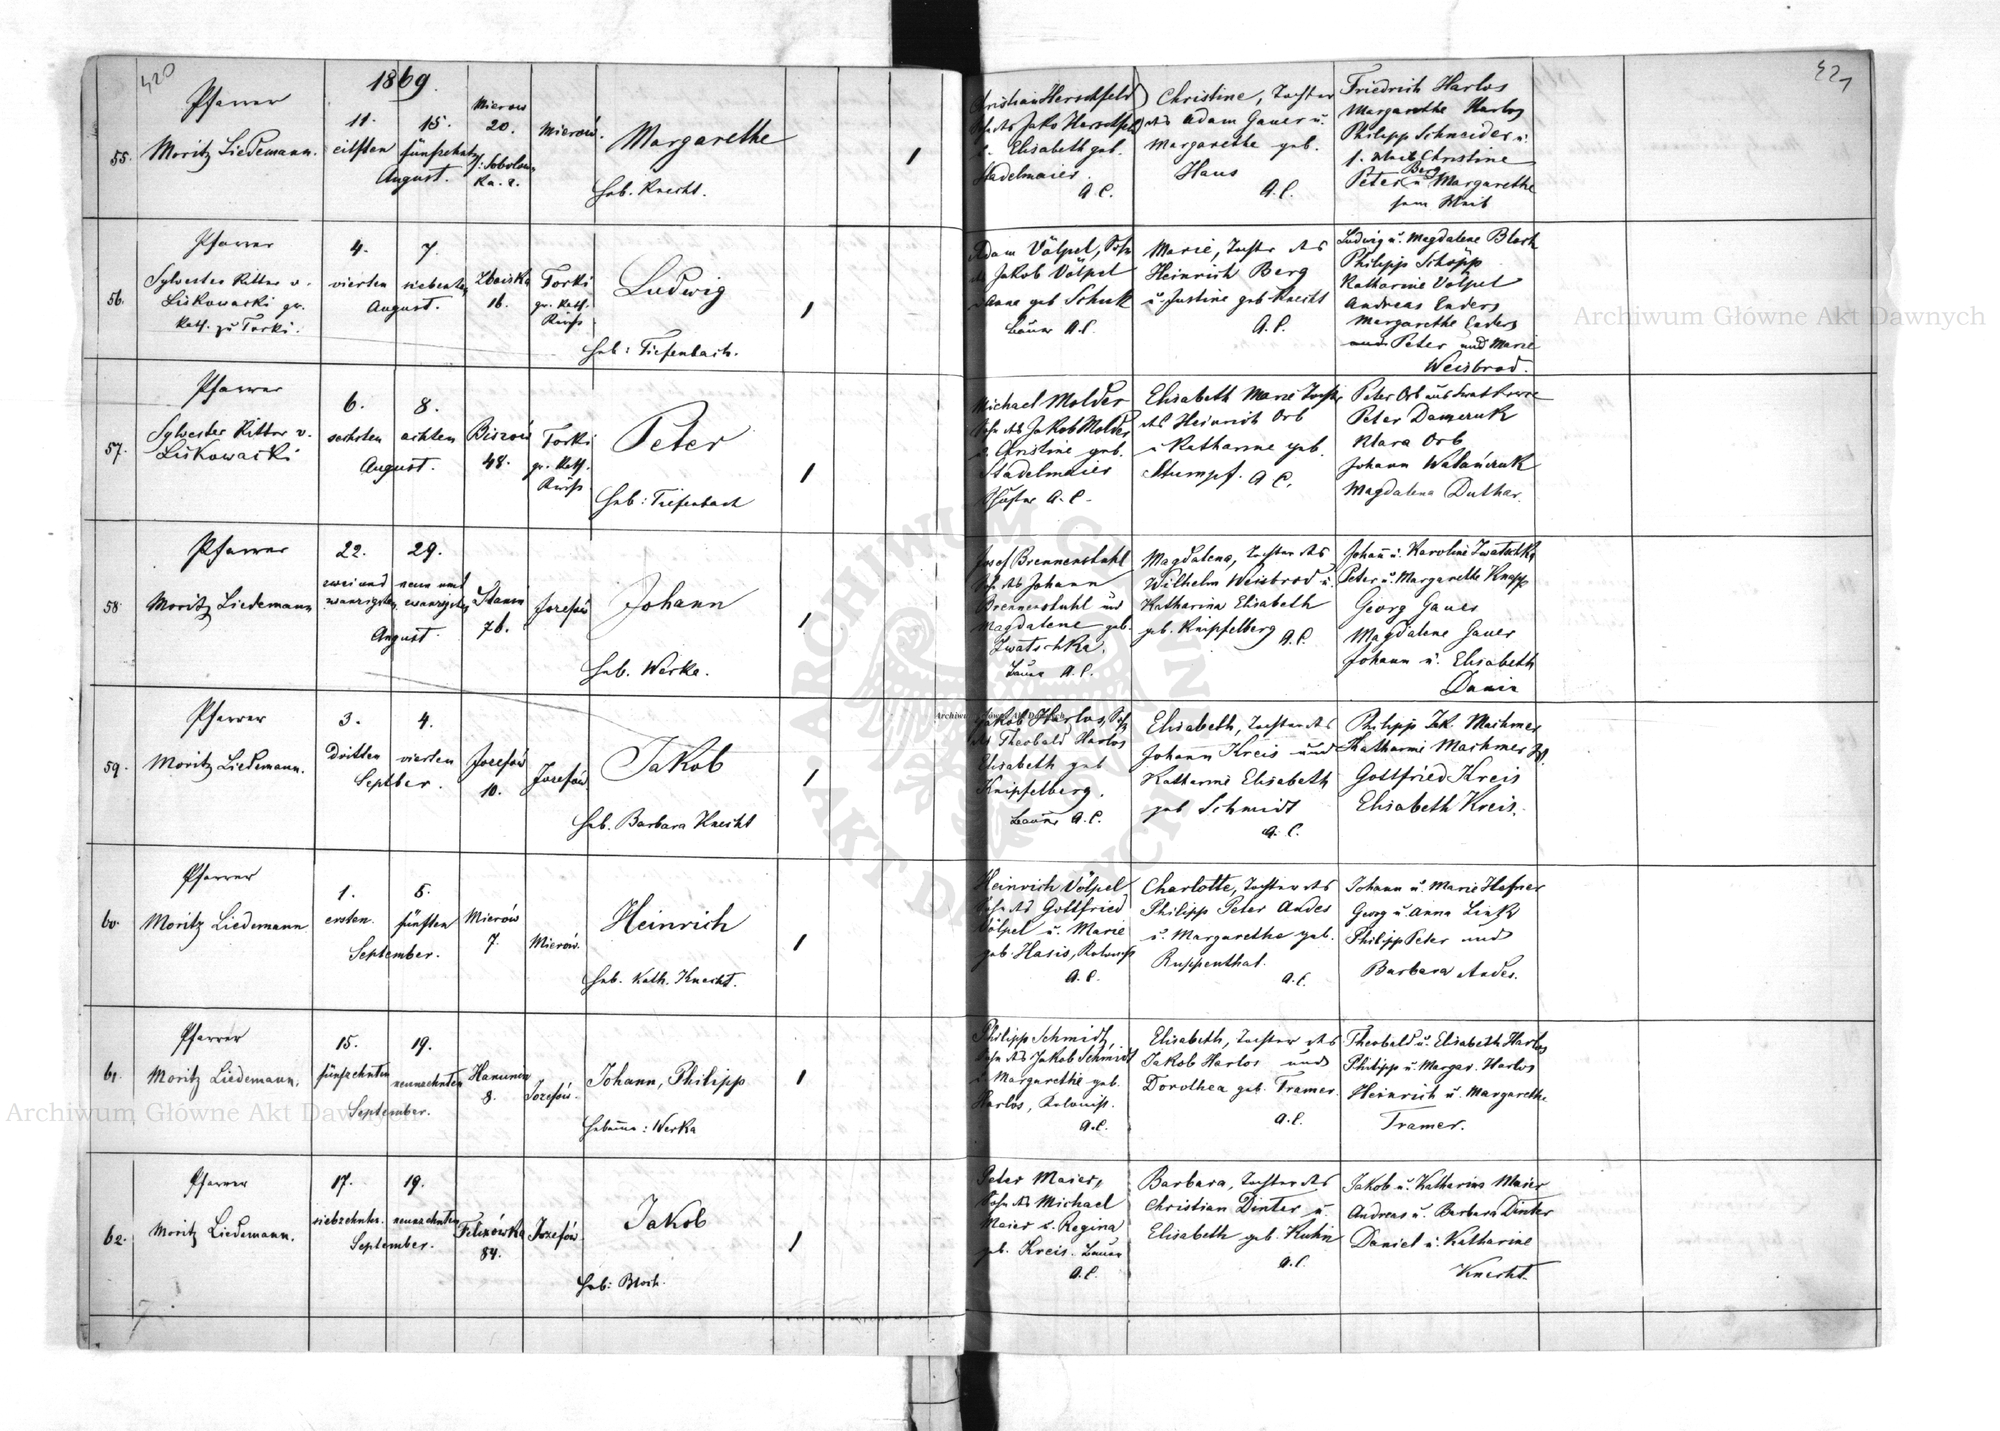 420
1869.
421
55.
Pfarrer
Moritz Liedemann.
11.
eilften
15.
fünfzehnten
August.
Mierow
20.
Mierów.
Margarethe
Heb. Knecht.
1
Christian Herschfeld
Sohn des Jakob Herschfeld
u. Elisabeth geb.
Stadelmaier.
A. C.
Christine, Tochter
des Adam Gauer u.
Margarethe geb.
Haus
A. C.
Friedrich Harlos
Margarethe Harlos
Philipp Schneider u.
s. Weib Christine
Berg
Peter u Margarethe
sein Weib
56.
Pfarrer
Sylvester Ritter v.
Liskowacki gr.
kath. zu Torki.
4.
vierten
7.
siebenten
August.
16.
Torki
gr. kath.
Kirche
Ludwig
Heb: Tiefenbach.
1
Adam Völpel, Sohn
des Jakob Völpel
u Anna geb Schuk
Bauer A. C.
Marie, Tochter des
Heinrich Berg
u. Justine geb Knecht
A. C.
Ludwig u. Magdalene Bloch
Philipp Schöpp
Katharine Völpel
Andreas Enders
Margarethe Enders
Peter und Marie
Weisbrod.
57.
Pfarrer
Sylvester Ritter v.
Liskowacki
6.
sechsten
8.
achten
August.
48.
Torki
gr. kath.
Kirche
Peter
Heb: Tiefenbach
1
Michael Molder
Sohn des Jakob Molder
u. Christine geb.
Stadelmaier
A. C.
Elisabeth Marie Tochter
des Heinrich Orb
u Katharine geb.
Stumpf. A C.
Peter Orb aus
Peter Damczuk
Klara Orb
Johann Walańczuk
Magdalena Duthar.
58.
Pfarrer
Moritz Liedemann
22.
zwei und
zwanzigsten
29.
neun und
zwanzigsten
August.
Stanin
76.
Josefów
Johann
Heb. Werka.
1
Josef Brennenstuhl
Sohn des Johann
Brennenstuhl und
Magdalene geb.
Zwatschka.
Bauer A. C.
Magdalena, Tochter des
Wilhelm Weisbrod u.
Katharina Elisabeth
geb. Knipfelberg A. C.
Johann u. Karoline Zwatschka
Peter u. Margarethe Knapp
Georg Gauer
Magdalene Gauer
Johann u. Elisabeth
59.
Pfarrer
Moritz Liedemann.
3.
dritten
4.
vierten
Septber.
Jozefów
10.
Jozefów
Jakob
Heb. Barbara Knecht
1
Jakob Harlos, Sohn
des Theobald Harlos
Elisabeth geb
Knipfelberg.
Bauer A. C.
Elisabeth, Tochter des
Johann Kreis und
Katharine Elisabeth
geb Schmidt
A. C.
Philipp Jak. Machmer
Katharine Machmer
Gottfried Kreis
Elisabeth Kreis.
60.
Pfarrer
Moritz Liedemann
1.
ersten
5.
fünften
September.
Mierów
7.
Mierów.
Heinrich
Heb. Kath. Knecht.
1
Heinrich Völpel
Sohn des Gottfried
Völpel u. Marie
geb. Hasis, Kolonist
A. C.
Charlotte, Tochter des
Philipp Peter Andes
u. Margarethe geb.
Ruppenthal.
A. C.
Johann u. Marie Hafner
Georg u. Anna Link
Philipp Peter und
Barbara Andes.
61.
Pfarrer
Moritz Liedemann.
15.
fünfzehnten
19.
neunzehnten
September.
Hanunin
8.
Jozefów.
Johann, Philipp
Hebamme: Werka
1
Philipp Schmidt,
Sohn des Jakob Schmidt
u Margarethe geb.
Harlos, Kolonist.
A. C.
Elisabeth, Tochter des
Jakob Harlos und
Dorothea geb. Tramer.
A. C.
Theobald u. Elisabeth Harlos
Philipp u. Margar. Harlos
Heinrich u. Margarethe
Tramer.
62.
Pfarrer
Moritz Liedemann.
17.
siebzehnten.
19.
neunzehnten
September.
Felixówka
84.
Jozefów.
Jakob
Heb: Bloch.
1
Peter Maier,
Sohn des Michael
Maier u. Regina
geb. Kreis. Bauer
A. C.
Barbara, Tochter des
Christian Dinter u.
Elisabeth geb. Kuhn
A. C.
Jakob u. Katharina Maier
Andreas u. Barbara Dinter
Daniel u. Katharine
Knecht.
Archiwum Główne Akt Dawnych
Archiwum Główne Akt Dawnych
Archiwum Główne Akt Dawnych
ARCHIWUM GŁÓWNE AKT DAWNYCH